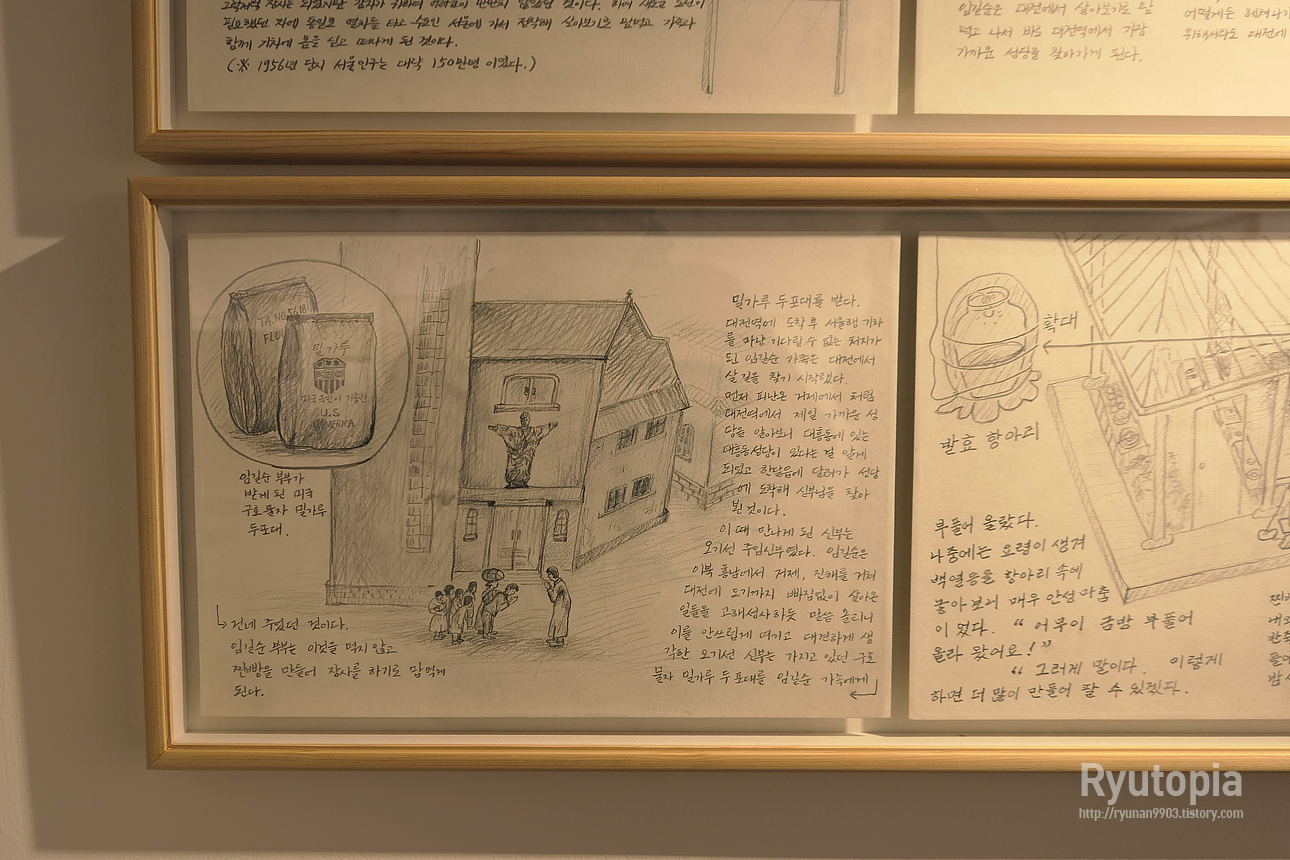 필요했던 차에 통일호 열차를 타고 수도인 서울에 가서 정착해 살아보기로 맘먹고 가족과
함께 기차에 몸을 싣고 떠나게 된 것이다.
(※ 1956년 당시 서울인구는 대략 150만명 이었다.)
임길순은 대전에서 살아보기로 맘
먹고 나서 바로 대전역에서 가장
가까운 성당을 찾아가게 된다.
어떻게든
위해서라도 대전에
밀가루
U.S
AMERICA
임길순 부부가
받게 된 미국
구호물자 밀가루
두포대.
밀가루 두포대를 받다.
대전역에 도착 후 서울행 기차
를 마냥 기다릴 수 없는 처지가
된 임길순 가족은 대전에서
살 길을 찾기 시작했다.
먼저 피난온 거제에서 처럼
대전역에서 제일 가까운 성
당을 알아보니 대흥동에 있는
대흥동성당이 있다는 걸 알게
되었고 한달음에 달려가 성당
에 도착해 신부님을 찾아
뵌 것이다.
이 때 만나게 된 신부는
오기선 주임신부였다. 임길순은
이북 흥남에서 거제, 진해를 거쳐
대전에 오기까지 빠짐없이 살아온
일들을 고해성사하듯 말씀 올리니
이를 안쓰럽게 여기고 대견하게 생
각한 오기선 신부는 가지고 있던 구호
물자 밀가루 두 포대를 임길순 가족에게
건네 주었던 것이다.
임길순 부부는 이것을 먹지 않고
찐빵을 만들어 장사를 하기로 맘먹게
된다.
확대
발효 항아리
부풀어 올랐다.
나중에는 요령이 생겨
백열등을 항아리 속에
놓아 보니 매우 안성마춤
이었다. “어무이 금방 부풀어
올라 왔어요!”
“그러게 말이다. 이렇게
하면 더 많이 만들어 팔 수 있겠다.
Ryutopia
http://ryunan9903.tistory.com